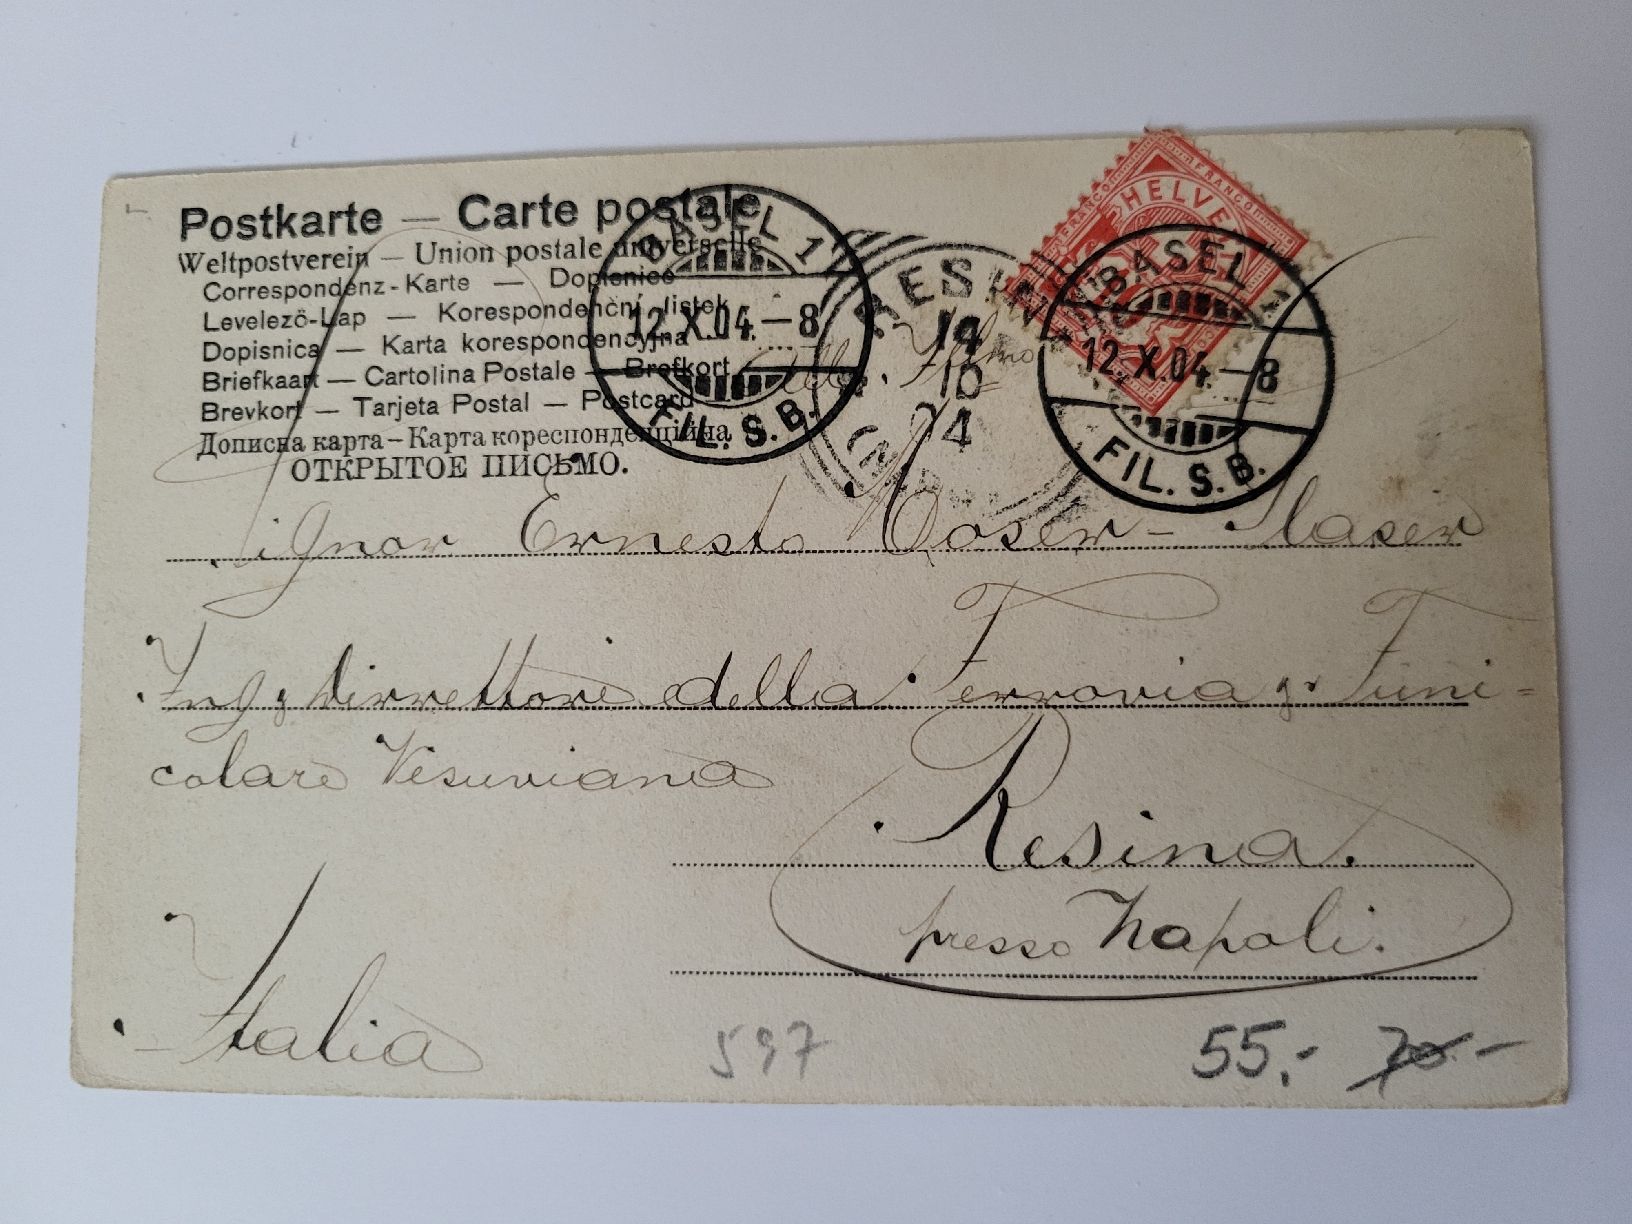 Postkarte — Carte postale
Weltpostverein — Union postale universelle
Correspondenz-Karte — Dopisnice
Levelező-Lap — Korespondenční listek
Dopisnica — Karta korespondencyjna
Briefkaart — Cartolina Postale — Brefkort
Brevkort — Tarjeta Postal — Postcard
Дописна карта – Карта кореспонденційна
ОТКРЫТОЕ ПИСЬМО.
BASEL 1
12.X.04.–8
FIL. S. B.
RESINA
14
10
04
HELVETIA
FRANCO
BASEL 1
12.X.04.–8
FIL. S. B.
All. Illmo
Signor Ernesto Moser-
Ing. Dirrettore della Ferrovia & Funi=
colare Vesuviana
Resina.
presso Napoli.
Italia
597
55.- 70.-